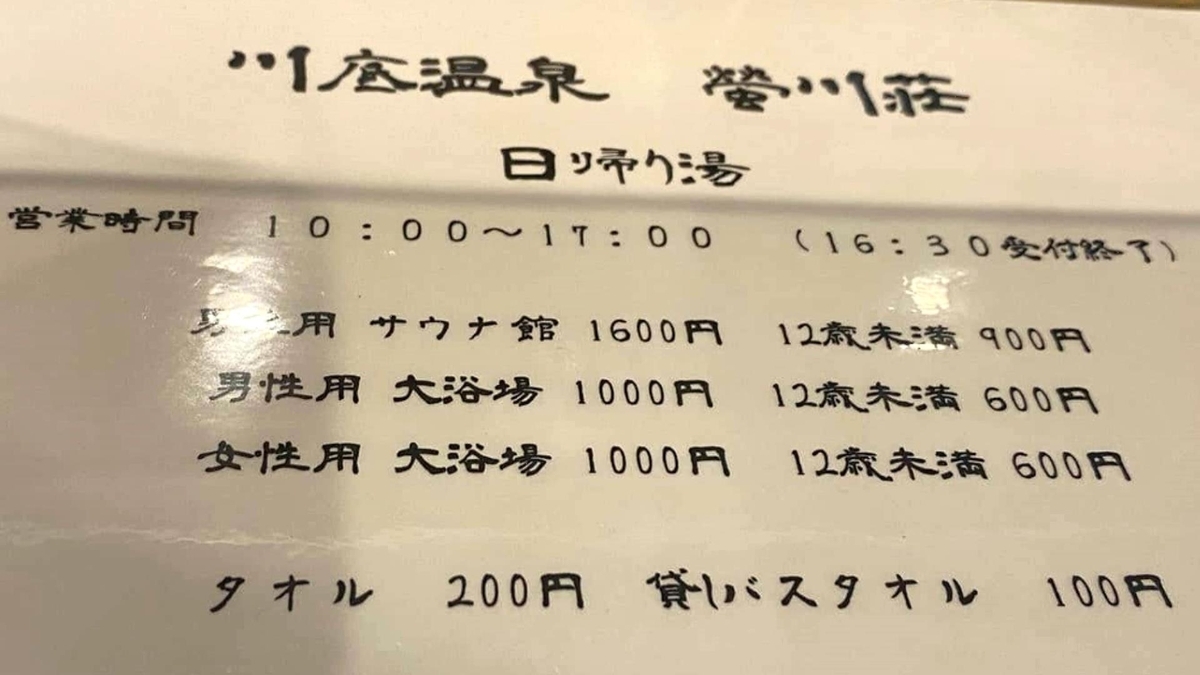 川底温泉 螢川荘
日帰り湯
営業時間 10:00～17:00 (16:30受付終了)
男性用 サウナ館 1600円 12歳未満 900円
男性用 大浴場 1000円 12歳未満 600円
女性用 大浴場 1000円 12歳未満 600円
タオル 200円 貸しバスタオル 100円